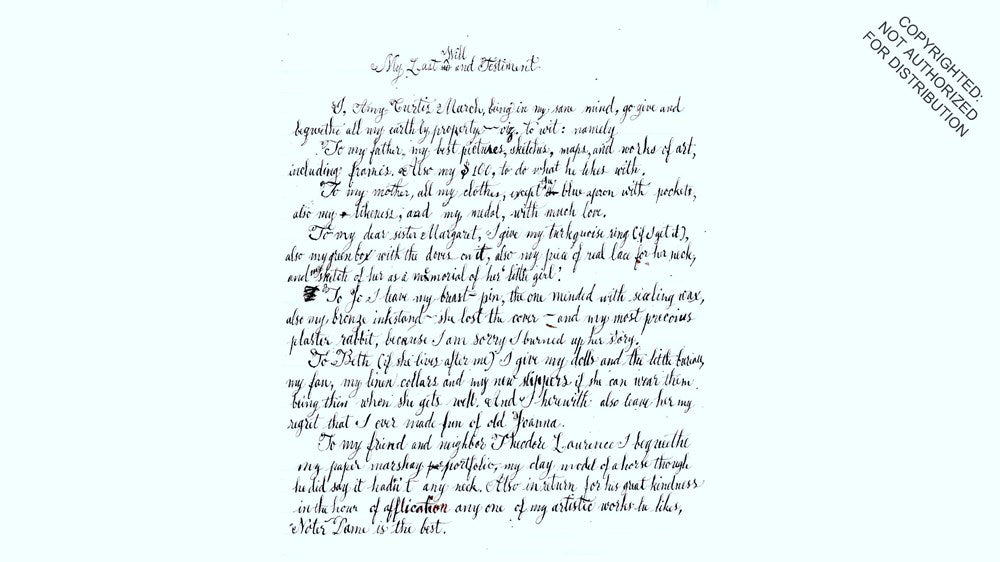 COPYRIGHTED:
NOT AUTHORIZED
FOR DISTRIBUTION
Will
My Last and Testiment
I, Amy Curtis March, being in my sane mind, go give and
bequethe all my earthly property — viz. to wit: namely
To my father, my best pictures, sketches, maps, and works of art,
including frames. Also my $100, to do what he likes with.
To my mother, all my clothes, except the blue apron with pockets,
also my likeness, and my medal, with much love.
To my dear sister Margaret, I give my turkquoise ring (if I get it),
also my green box with the doves on it, also my piece of real lace for her neck,
and my sketch of her as a memorial of her "little girl".
To Jo I leave my breast-pin, the one mended with sealing wax,
also my bronze inkstand - she lost the cover - and my most precious
plaster rabbit, because I am sorry I burned up her story.
To Beth (if she lives after me) I give my dolls and the little bureau,
my fan, my linen collars and my new slippers if she can wear them
being thin when she gets well. And I herewith also leave her my
regret that I ever made fun of old Joanna.
To my friend and neighbor Theodore Laurence I bequethe
my paper marshay portfolio, my clay model of a horse though
he did say it hadn't any neck. Also in return for his great kindness
in the hour of afflication any one of my artistic works he likes,
Noter Dame is the best.